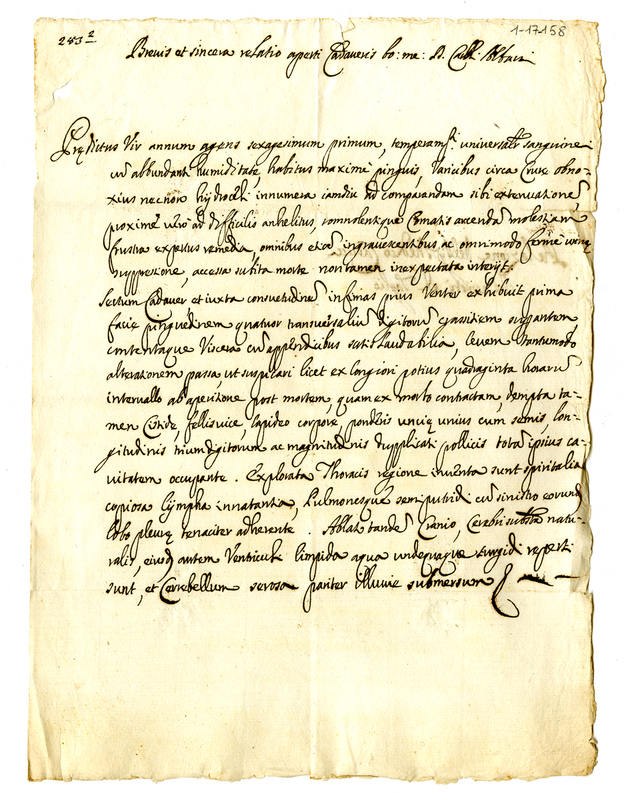 283²
1-17158
Brevis et sincera relatio aperti Cadaveris bo: me: D. Albani
Prędictus Vir annum agens sexagesimum primum, temperamt. universalr sanguineū
cū abbundanti humiditate, habitus maximè pinguis, Varicibus circa Crura obno-
xius nec non hydroceli innumera iamdiu ad comparandam sibi extenuationē,
proximè verò ad difficilis anhelitus, somnolentique Comatis arcenda molestiam
frustra expertus remedia, omnibus ingravescentibus ac omnimodo fermè urinę
suppressione, accessa subita morte non tamen inexpectata interijt.
Sectum Cadaver et iuxta consuetudinē infimus prius Venter exhibuit prima
facie pinguedinem quatuor transversaliū digitorū crassitiem occupantem,
contentaque Viscera cū appendicibus satis laudabilia, levem tantummodo
alterationem passa, ut suspicari licet ex longiori potius quadraginta horarū
intervallo ab apertione post mortem, quam ex morbo contractam, dempta ta-
men Cistide, fellis vice, lapideo corpore, ponderis uncię unius cum semis, lon-
gitudinis trium digitorum ac magnitudinis dupplicati pollicis totā ipsius ca-
vitatem occupante. Explorata Thoracis regione inventa sunt spiritalia
copiosa lympha innatantia, Pulmonesque semiputridi cū sinistro eorund
lobo pleurę tenaciter adherente. Ablato tandē Cranio, Cerebri substā natu-
ralis, eiusdē autem Ventriculi limpida aqua undequaque turgidi reperti
sunt, et Cerebellum serosa pariter illuvie submersum